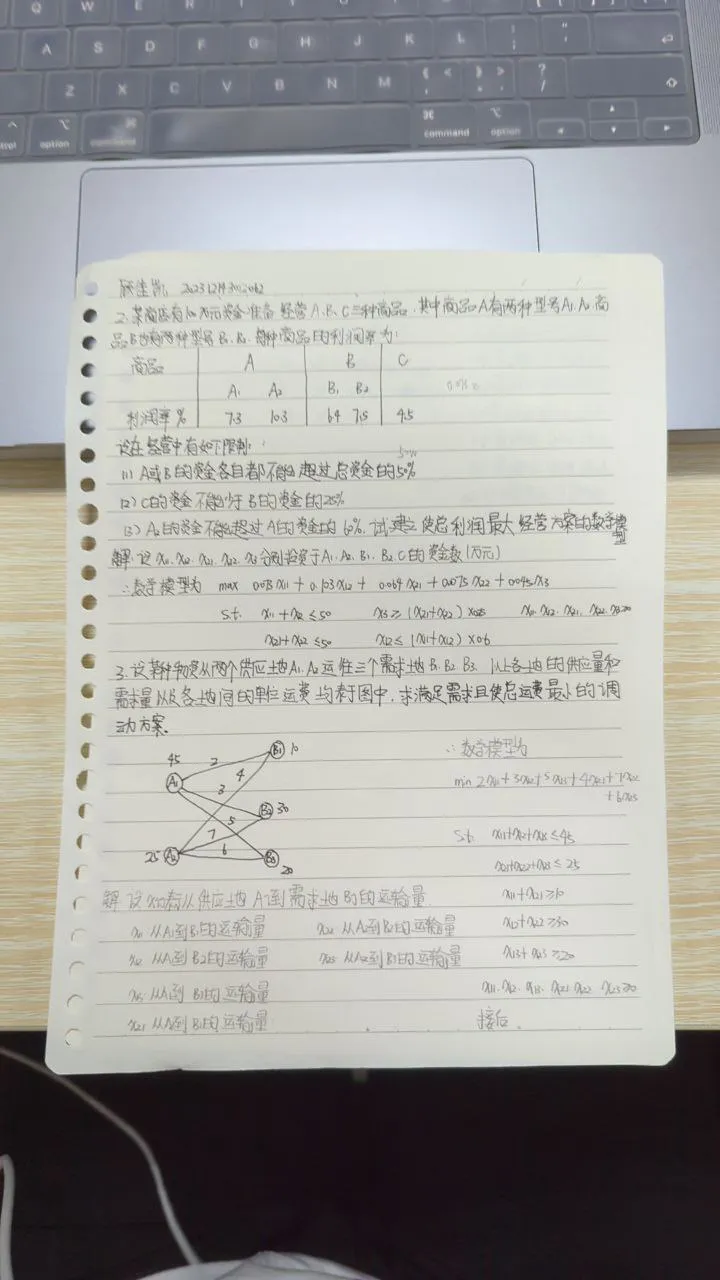 Q W E R T Y U I O P
A S D F G H J K L
Z X C V B N M
option command command option
2. 某商店有100万元资金准备经营A、B、C三种商品，其中商品A有两种型号A₁、A₂，商
品B也有两种型号B₁、B₂，每种商品的利润率为：
商品 A B C
A₁ A₂ B₁ B₂
利润率% 7.3 10.3 6.4 7.5 4.5
设在经营中有如下限制：
(1) A或B的资金各自都不能超过总资金的50%
(2) C的资金不能少于B的资金的25%
(3) A₂的资金不能超过A的资金的60%，试建立使总利润最大经营方案的数学模型
解：设x₁₁、x₁₂、x₂₁、x₂₂、x₃分别投资于A₁、A₂、B₁、B₂、C的资金数(万元)
∴数学模型为 max 0.073x₁₁ + 0.103x₁₂ + 0.064x₂₁ + 0.075x₂₂ + 0.045x₃
s.t. x₁₁ + x₁₂ ≤ 50 x₃ ≥ (x₂₁+x₂₂)×0.25 x₁₁, x₁₂, x₂₁, x₂₂, x₃≥0
x₂₁+x₂₂ ≤50 x₁₂ ≤ (x₁₁+x₁₂)×0.6
3. 设某种物资从两个供应地A₁、A₂运往三个需求地B₁、B₂、B₃，以上各地的供应量和
需求量以及各地间的单位运费均表于图中，求满足需求且使总运费最小的调
动方案。
45 A₁ 2 B₁ 10
4
3
5 B₂ 30
7
25 A₂ 6 B₃ 20
∴数学模型为
min 2x₁₁+3x₁₂+5x₁₃+4x₂₁+7x₂₂
+6x₂₃
s.t. x₁₁+x₁₂+x₁₃≤45
x₂₁+x₂₂+x₂₃ ≤ 25
x₁₁+x₂₁≥10
x₁₂+x₂₂≥30
x₁₃+x₂₃≥20
x₁₁, x₁₂, x₁₃, x₂₁, x₂₂, x₂₃≥0
接后。
解 设xᵢⱼ表从供应地Aᵢ到需求地Bⱼ的运输量
x₁₁ 从A₁到B₁的运输量 x₂₂ 从A₂到B₂的运输量
x₁₂ 从A₁到B₂的运输量 x₂₃ 从A₂到B₃的运输量
x₁₃ 从A₁到B₃的运输量
x₂₁ 从A₂到B₁的运输量